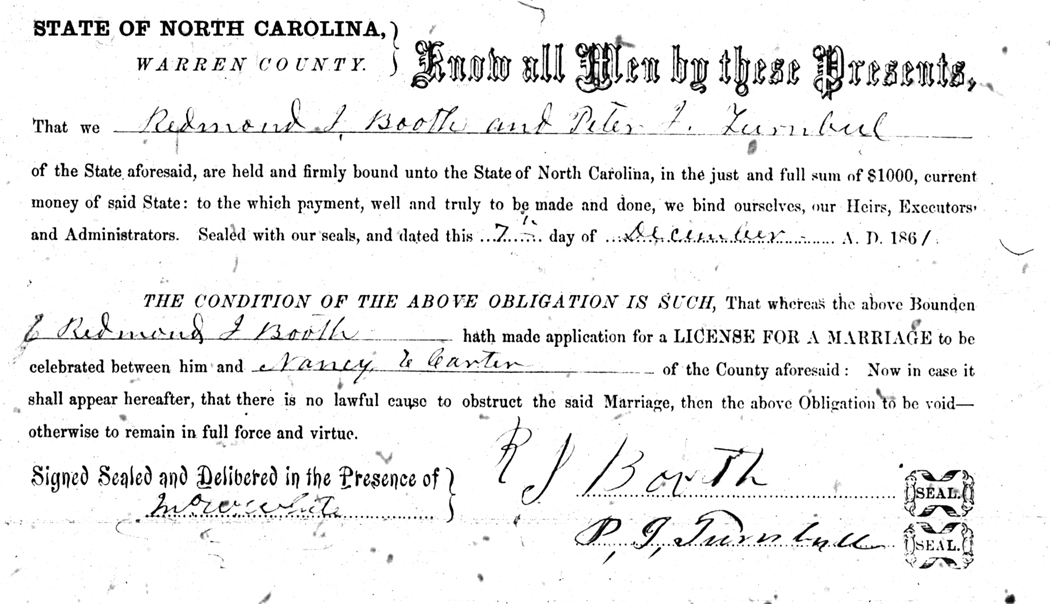 STATE OF NORTH CAROLINA,
WARREN COUNTY.
Know all Men by these Presents,
That we Redmond J, Booth and Peter J. Turnbul
of the State aforesaid, are held and firmly bound unto the State of North Carolina, in the just and full sum of $1000, current
money of said State: to the which payment, well and truly to be made and done, we bind ourselves, our Heirs, Executors
and Administrators. Sealed with our seals, and dated this 7th day of December A. D. 1861.
THE CONDITION OF THE ABOVE OBLIGATION IS SUCH, That whereas the above Bounden
Redmond J Booth hath made application for a LICENSE FOR A MARRIAGE to be
celebrated between him and Nancy E Carter of the County aforesaid: Now in case it
shall appear hereafter, that there is no lawful cause to obstruct the said Marriage, then the above Obligation to be void—
otherwise to remain in full force and virtue.
Signed Sealed and Delivered in the Presence of
R J Booth SEAL.
White
P, J, Turnbull SEAL.